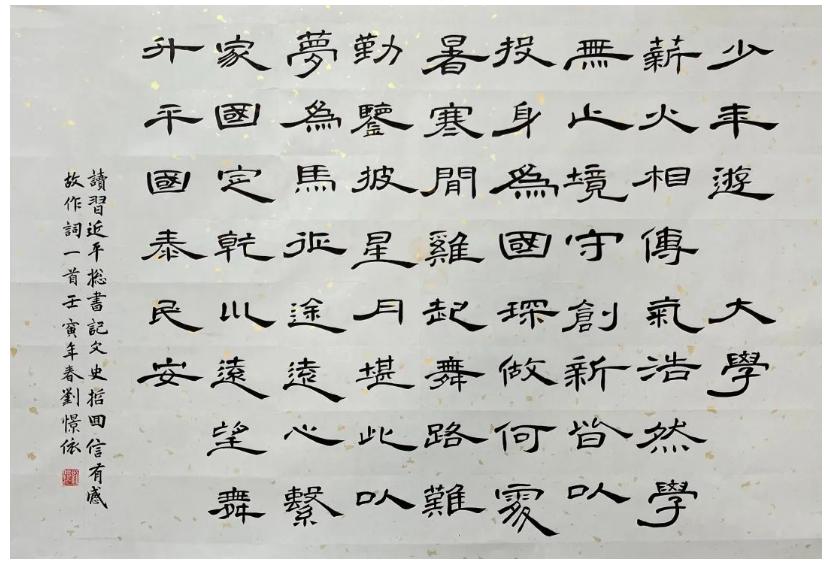 少年遊 大學
薪火相傳氣浩然學
無止境守創新皆以
投身為國琛做何
暑寒間雞起舞路難
勤鑒披星月堪此以
夢為馬征途遠心繫
家國定乾遠望舞
升平國泰民安
讀習近平總書記文史哲回信有感
故作詞一首壬寅年春劉憬依